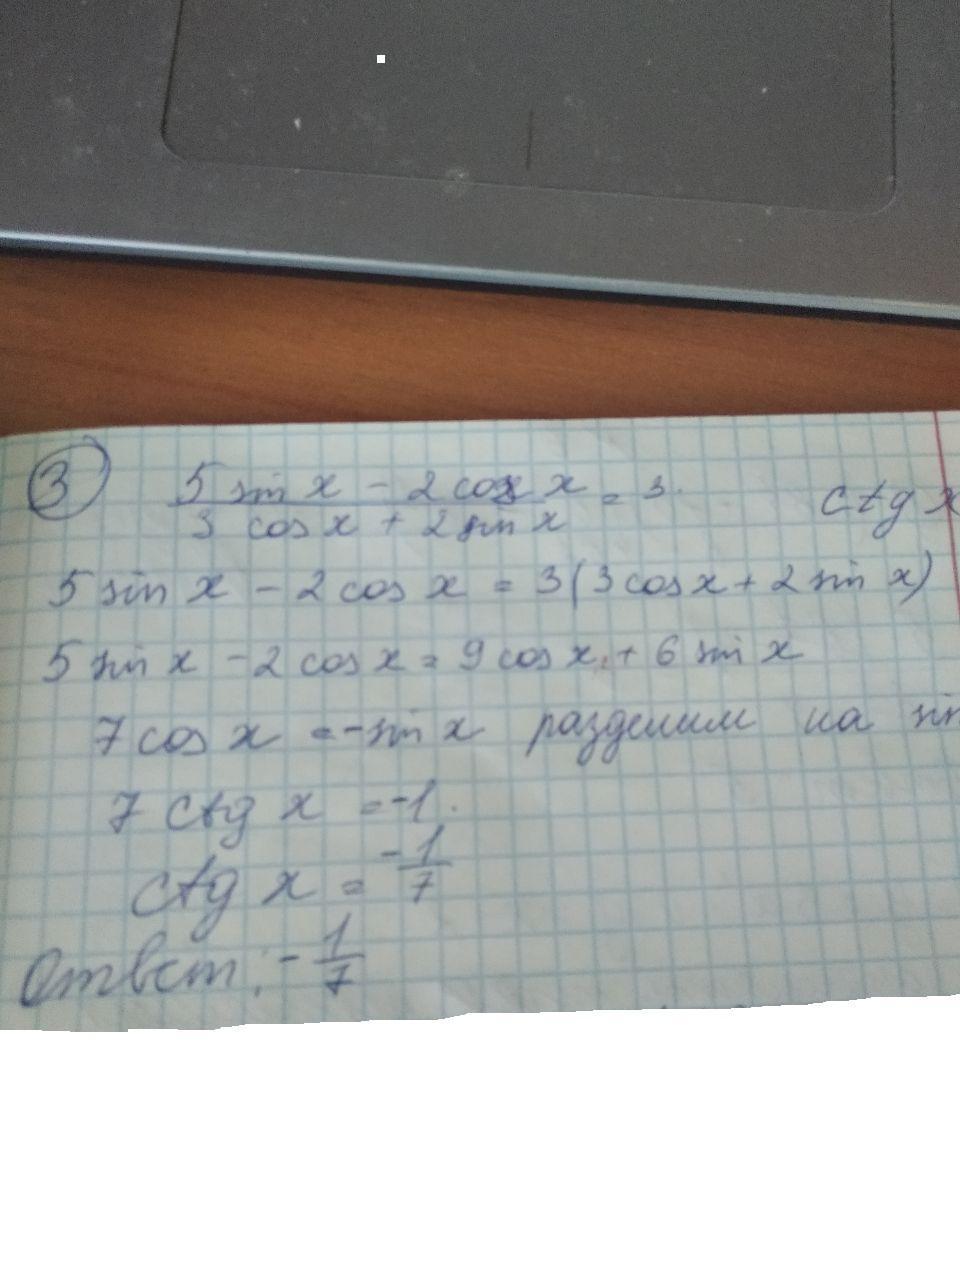 3 5 sin x - 2 cos x / 3 cos x + 2 sin x = 3. ctg x
5 sin x - 2 cos x = 3(3 cos x + 2 sin x)
5 sin x - 2 cos x = 9 cos x + 6 sin x
7 cos x = - sin x разделим на sin
7 ctg x = -1.
ctg x = -1/7
Ответ: - 1/7